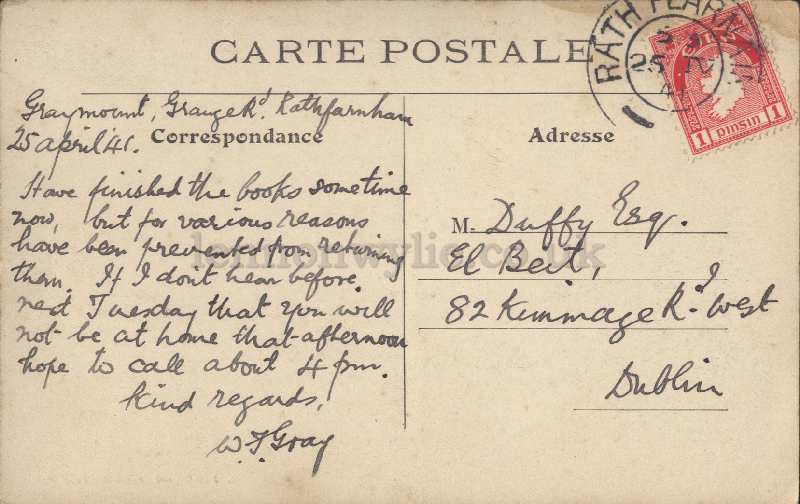 CARTE POSTALE
RATH FEARN
25 IV
41
1 PINSIN 1
Graymount, Grange Rd. Rathfarnham
25 April '41.
Correspondance
Have finished the books sometime
now, but for various reasons
have been prevented from returning
them. If I don't hear before
next Tuesday that you will
not be at home that afternoon
hope to call about 4 pm.
Kind regards,
W. F. Gray
Adresse
M. Duffy Esq.
El Beit,
82 Kimmage Rd. West
Dublin
lennonwylie.co.uk